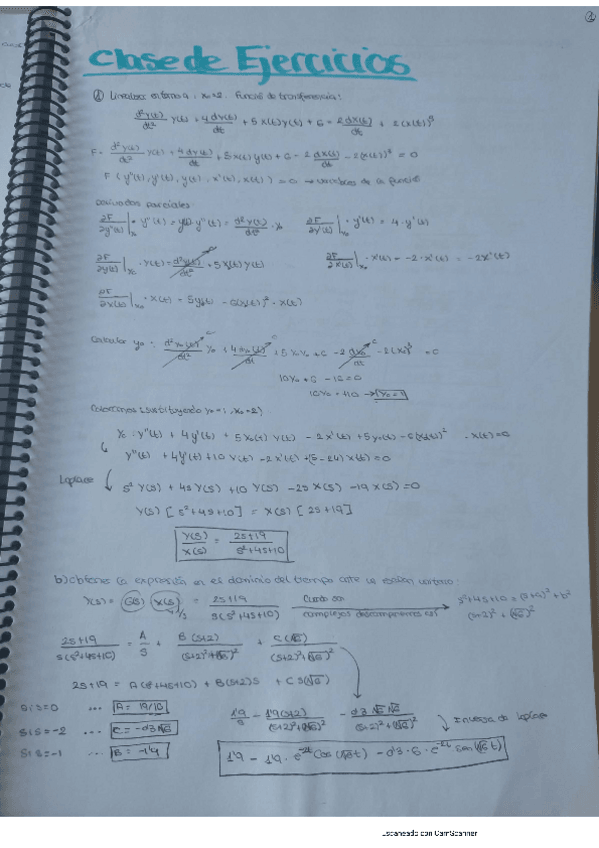 Clase de Ejercicios
en torno a : x₀=2. Función de transferencia:
d²y(t)/dt² y(t) + 4 dy(t)/dt + 5x(t)y(t) + 6 = 2 dx(t)/dt + 2(x(t))³
F = d²y(t)/dt² y(t) + 4 dy(t)/dt + 5x(t)y(t) + 6 - 2 dx(t)/dt - 2(x(t))³ = 0
F (y''(t), y'(t), y(t), x'(t), x(t)) = 0 → variables de la función
Derivadas parciales:
∂F/∂y''(t)|x₀ · y''(t) = y''(t) = d²y(t)/dt² · y₀ ∂F/∂y'(t)|x₀ · y'(t) = 4 · y'(t)
∂F/∂y(t)|x₀ · y(t) = d²y(t)/dt² + 5x(t)y(t) ∂F/∂x'(t)|x₀ · x'(t) = -2 · x'(t) = -2x'(t)
∂F/∂x(t)|x₀ · x(t) = 5y(t) - 6(x(t))² · x(t)
Calcular y₀ : d²y₀(t)/dt² y₀ + 4 + 5x₀y₀ + 6 - 2 dx₀/dt - 2(x₀)³ = 0
10y₀ + 6 - 16 = 0
10y₀ = +10 → y₀ = 1
(sustituyendo y₀=1, x₀=2)
y₀ · y''(t) + 4y'(t) + 5x₀(t) y(t) - 2x'(t) + 5y₀(t) - 6(x₀(t))² · x(t) = 0
y''(t) + 4y'(t) + 10 y(t) - 2x'(t) + (5-24) x(t) = 0
Laplace s² Y(s) + 4s Y(s) + 10 Y(s) - 2s X(s) - 19 X(s) = 0
Y(s) [s²+4s+10] = X(s) [2s+19]
Y(s)/X(s) = 2s+19 / s²+4s+10
b) obtener la expresión en el dominio del tiempo ante escalón unitario:
Y(s) = G(s) X(s) 1/s = 2s+19 / s(s²+4s+10) Cuando son complejos s²+4s+10 = (s+a)²+b²
(s+2)²+(√6)²
2s+19 / s(s²+4s+10) = A/s + B(s+2) / (s+2)²+(√6)² + C(√6) / (s+2)²+(√6)²
2s+19 = A(s²+4s+10) + B(s+2)s + C s(√6)
Si s=0 ... A = 19/10
Si s=-2 ... C = -0'3√6
Si s=-1 ... B = -1'9
1'9/s - 1'9(s+2) / (s+2)²+(√6)² - 0'3 √6 √6 / (s+2)²+(√6)² Inversa de Laplace
1'9 - 1'9 · e⁻²ᵗ cos(√6t) - 0'3 · 6 · e⁻²ᵗ sen(√6 t)
Escaneado con CamScanner